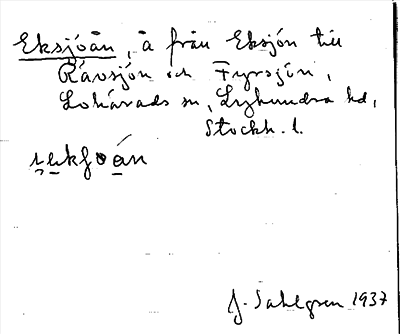 Eksjöån, å från Eksjön till
Rävsjön och Fyrsjön,
Lohärads sn, Lyhundra hd,
Stockh. l.
J. Sahlgren 1937